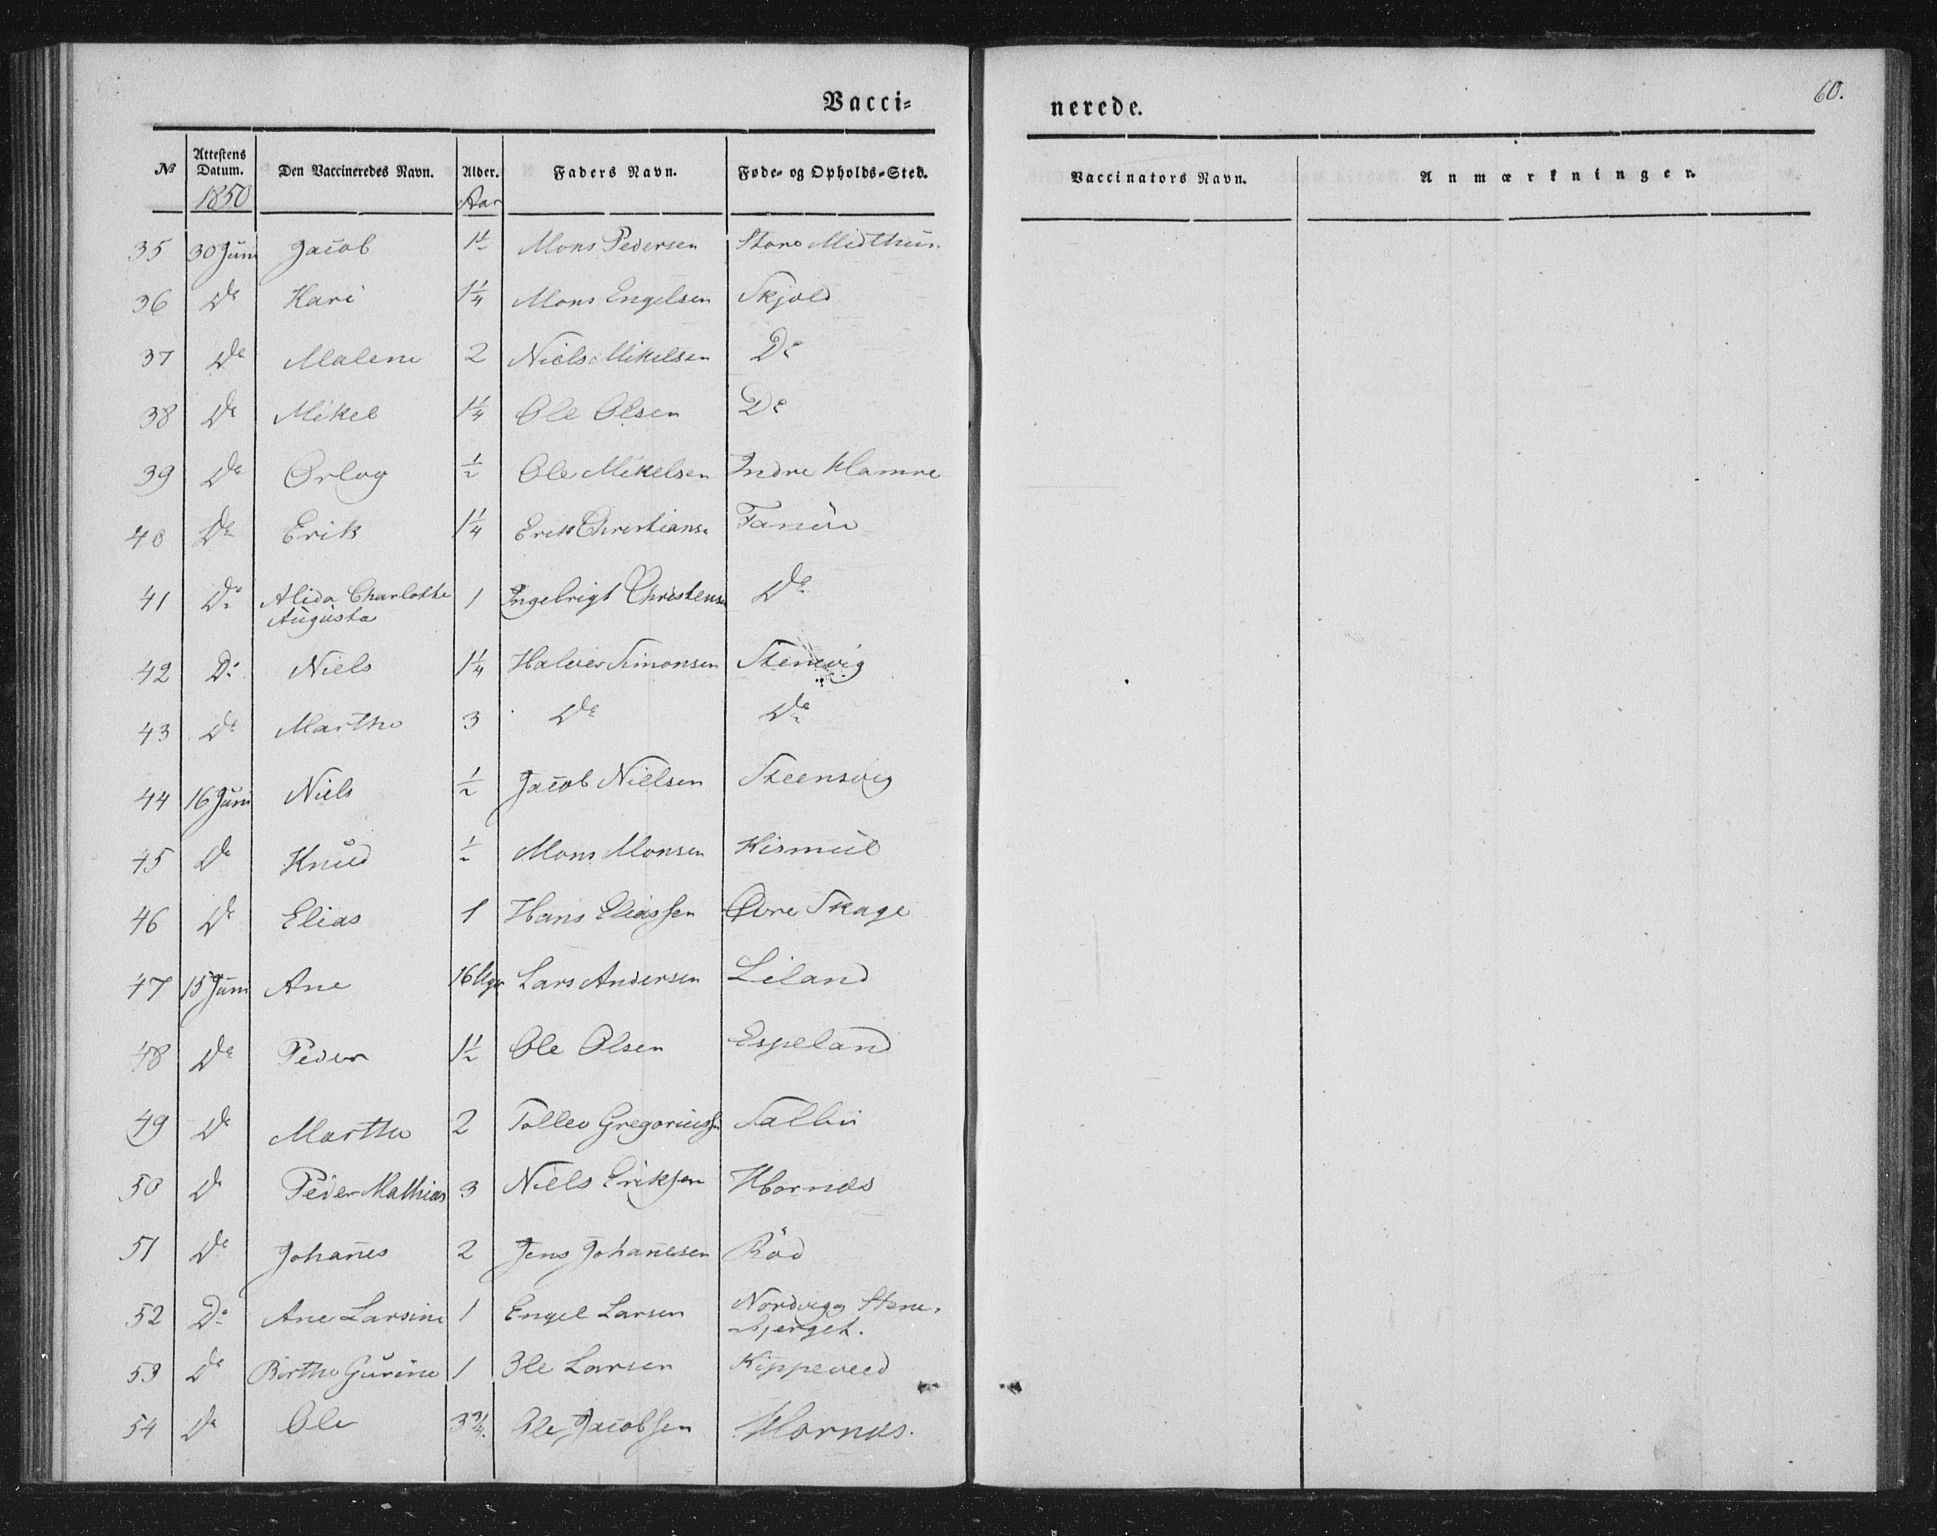 Vacci-
nerede.
60.
№ Attestens Datum. Den Vaccineredes Navn. Alder. Faders Navn. Føde- og Opholds-Sted. Vaccinators Navn. Anmærkninger.
1850 Aar
35 30 Juni Jacob Mons Pedersen Store Midthun
36 Do Kari 1 1/4 Mons Engelsen Skjold
37 Do Malene 2 Niels Mikelsen Do
38 Do Mikel 1 1/4 Ole Olsen Do
39 Do Orlog 1/2 Ole Mikelsen Indre Hamre
40 Do Erik 1 1/4 Erik Christians.
41 Do Alida Charlotte 1 Ingebrigt Christensen Do
Augusta
42 Do Niels 1 1/4 Halver Simonsen Stensvig
43 Do Marthe 3 Do Do
44 16 Juni Niels 1/2 Jacob Nielsen Steensvig
45 Do Knud 1/2 Mons Monsen Kismul
46 Do Elias 1 Hans Eliassen Øvre Skage
47 15 Juni Ane 16 Uger Lars Andersen Liland
48 Do Peder 1 1/2 Ole Olsen Espeland
49 Do Marthe 2 Tollev Gregoriuss. Salbu
50 Do Peder Mathias 3 Niels Eriksen Hornæs
51 Do Johan̄es 2 Jens Johan̄esen Röd
52 Do Ane Larsine 1 Engel Larsen Nordvig Stene-
bjerget.
53 Do Birthe Gurine 1 Ole Larsen
54 Do Ole 3 3/4 Ole Jacobsen Hornæs.